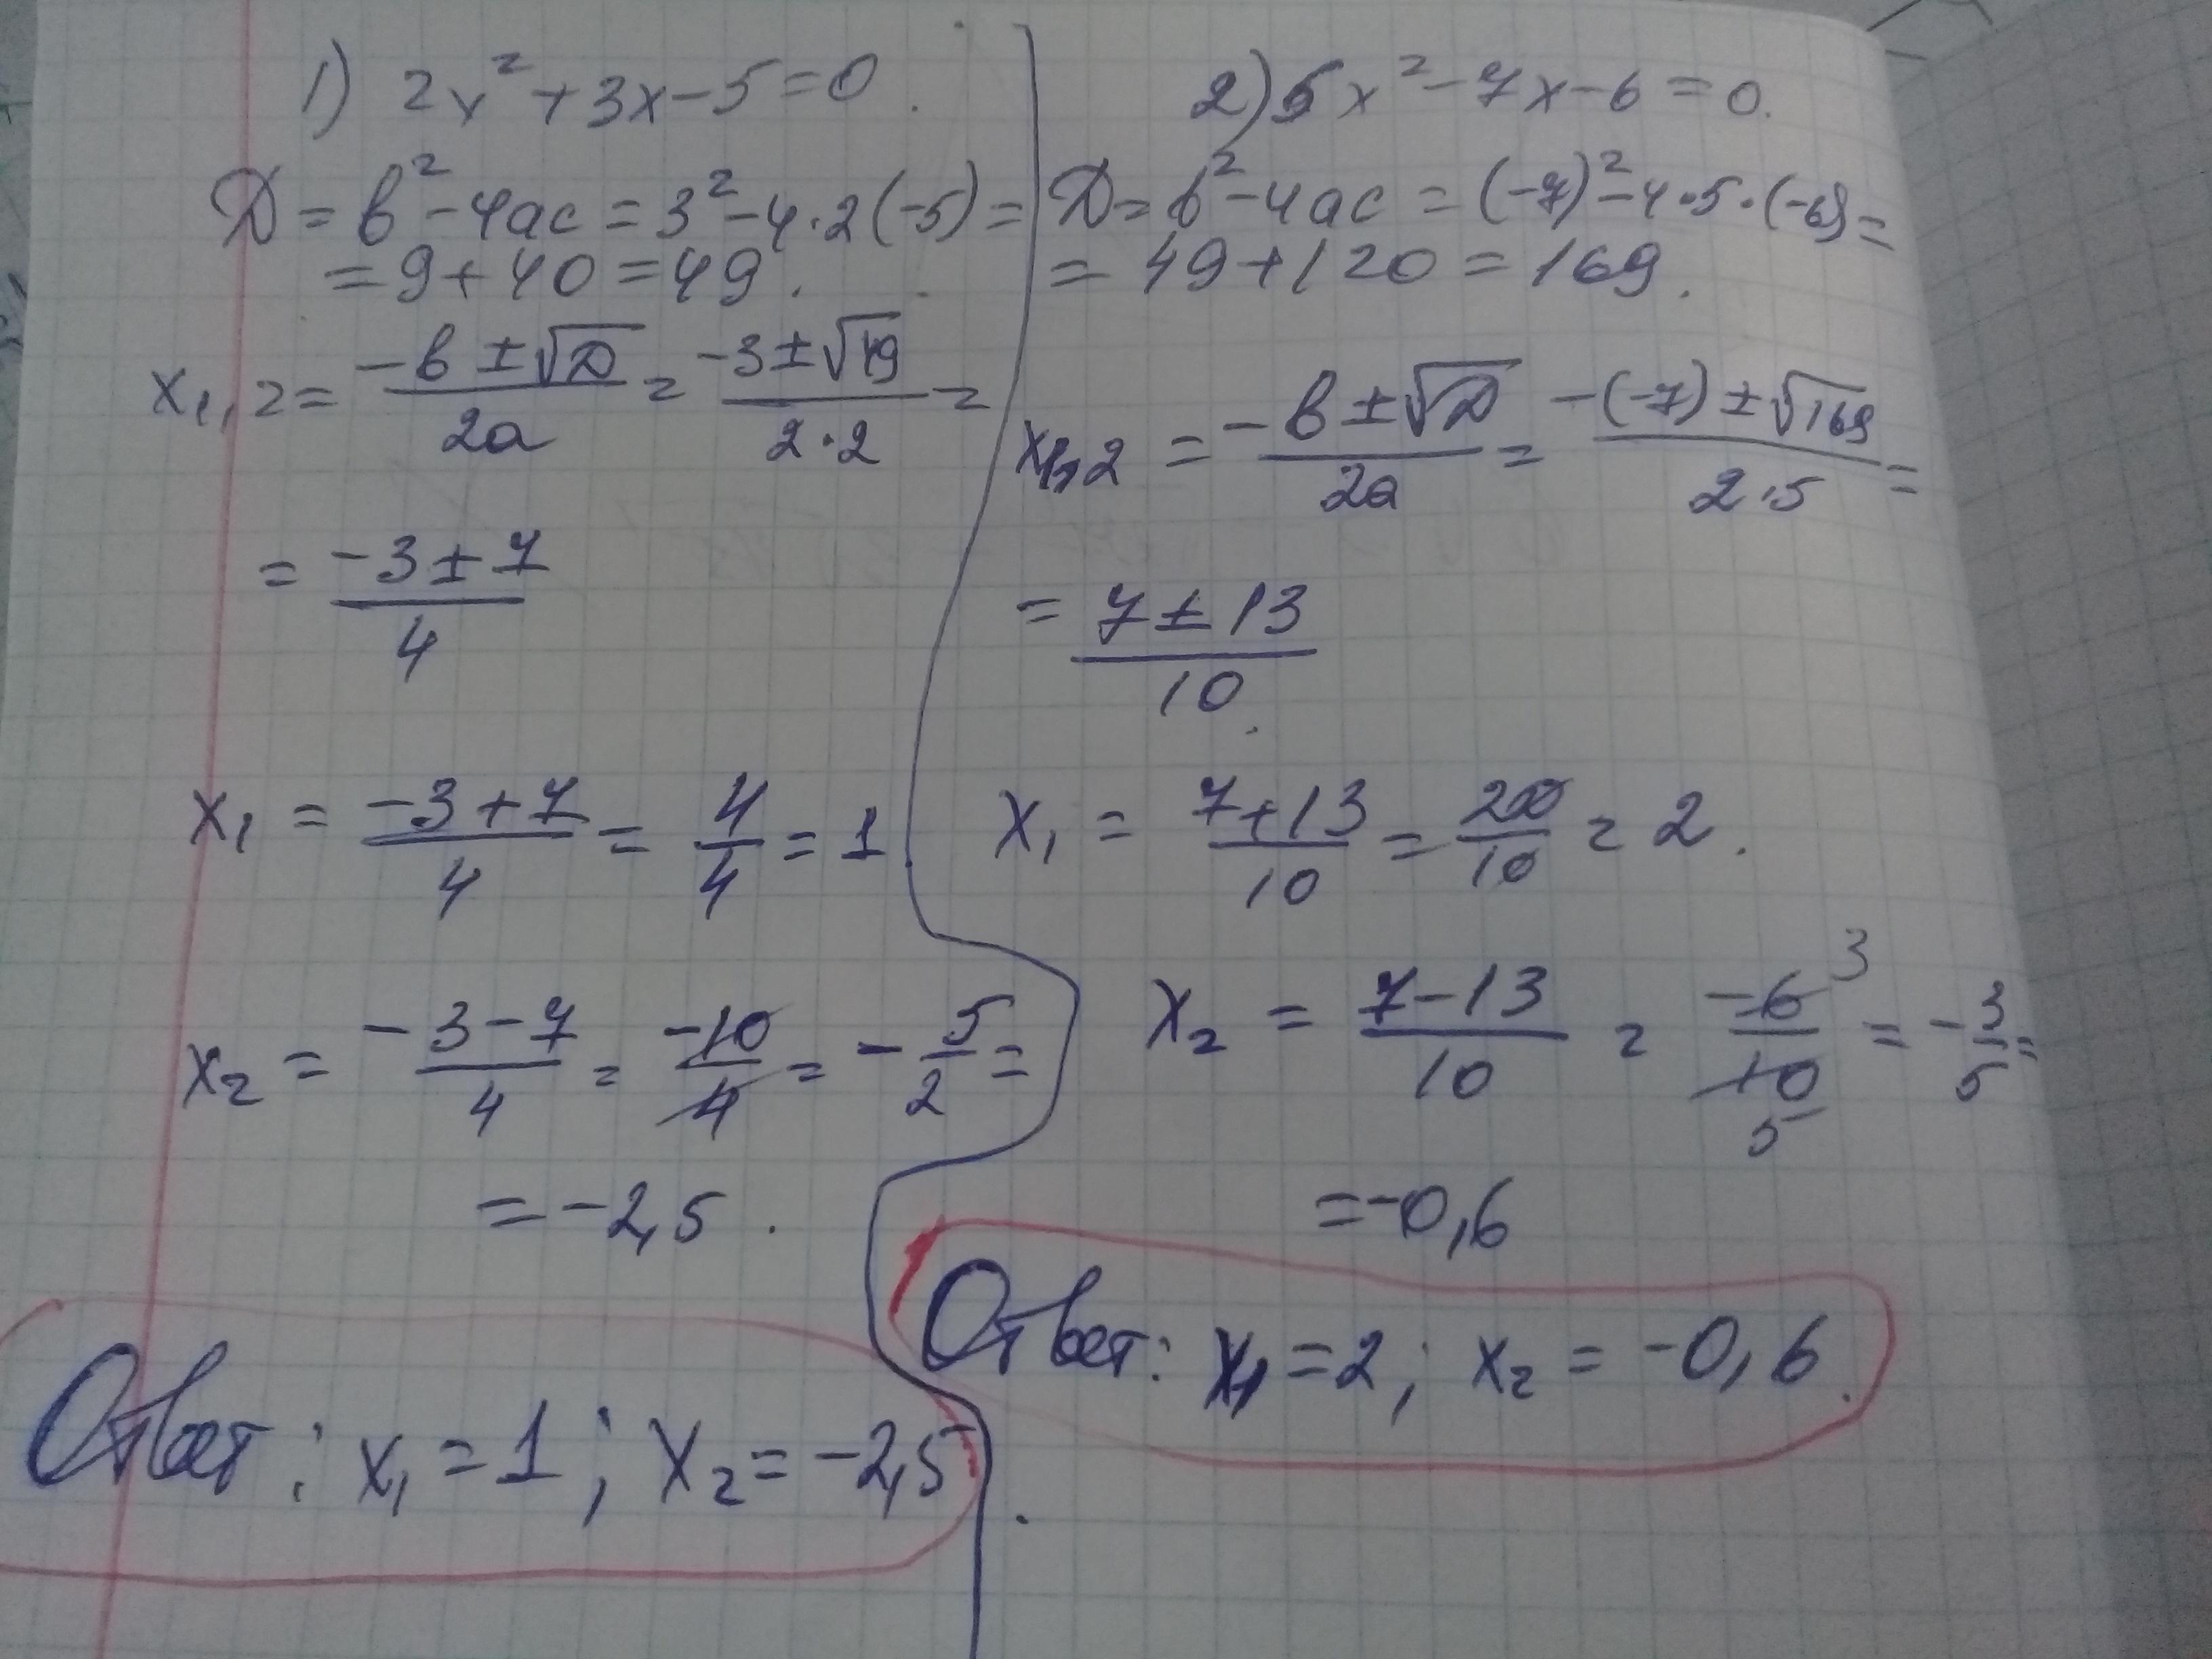 1) 2x² + 3x - 5 = 0.
D = b² - 4ac = 3² - 4·2(-5) =
= 9 + 40 = 49.
x₁,₂ = (-b ± √D)/(2a) = (-3 ± √49)/(2·2) =
= (-3 ± 7)/4
x₁ = (-3 + 7)/4 = 4/4 = 1
x₂ = (-3 - 7)/4 = -10/4 = -5/2 =
= -2,5.
Ответ: x₁ = 1; x₂ = -2,5.
2) 5x² - 7x - 6 = 0.
D = b² - 4ac = (-7)² - 4·5·(-6) =
= 49 + 120 = 169.
x₁,₂ = (-b ± √D)/(2a) = (-(-7) ± √169)/(2·5) =
= (7 ± 13)/10.
x₁ = (7 + 13)/10 = 20/10 = 2.
x₂ = (7 - 13)/10 = -6 3/10 5 = -3/5 =
= -0,6
Ответ: x₁ = 2; x₂ = -0,6.